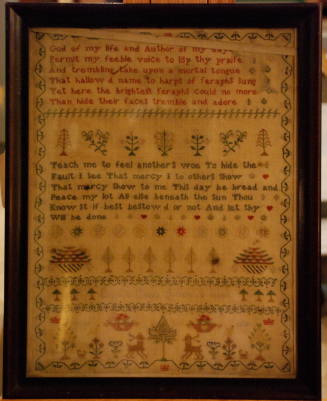 God of my life and Author of my days
Permit my feeble voice to lisp thy praise
And trembling take upon a mortal tongue
That hallow d name to harps of seraphs sung
Yet here the brightest seraphs could no more
Than hide their faces tremble and adore
Teach me to feel anothers woe To hide the
Fault I see That mercy I to others Show
That mercy Show to me This day be bread and
Peace my lot All else beneath the Sun Thou
Know St if best bestow d or not And let thy
Will be done